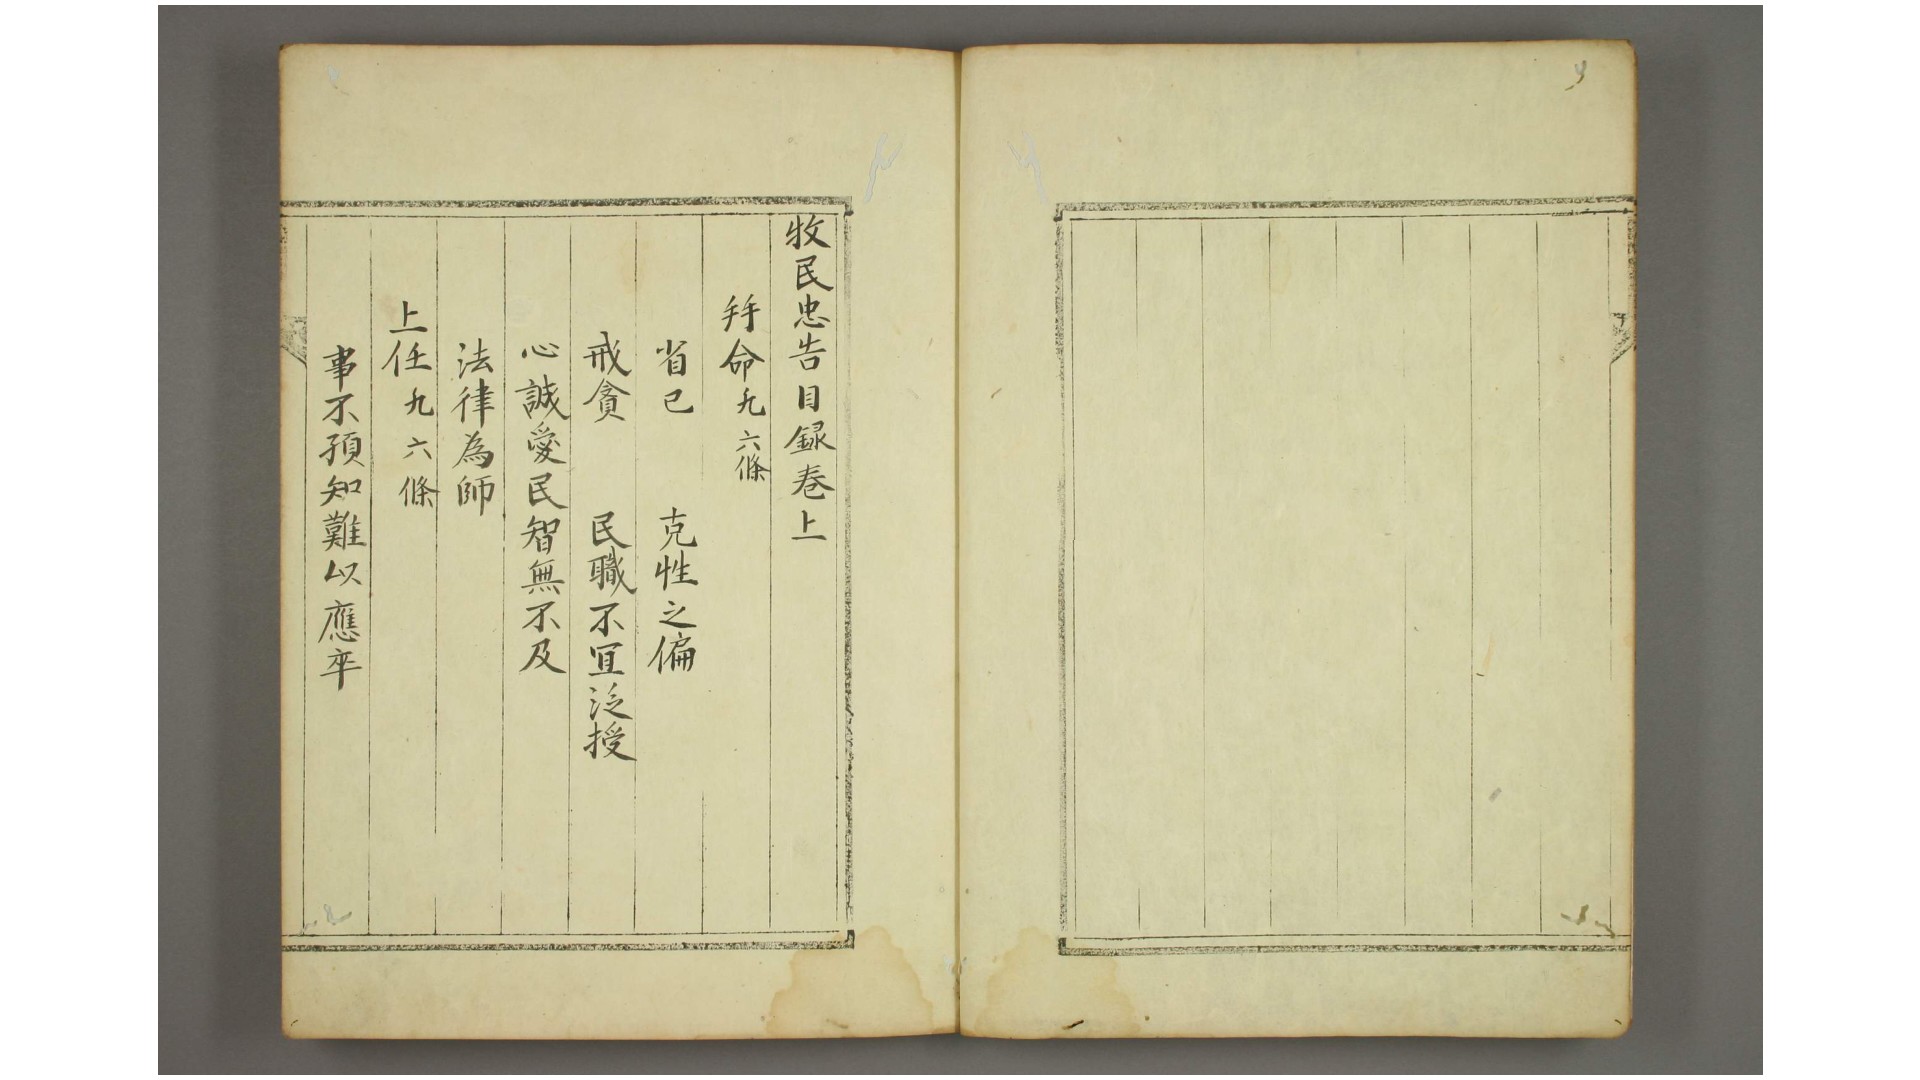 牧民忠告目録卷上
拜命凢六條
省已　克性之偏
戒貪　民職不冝泛授
心誠愛民智無不及
法律為師
上任凢六條
事不預知難以應卒